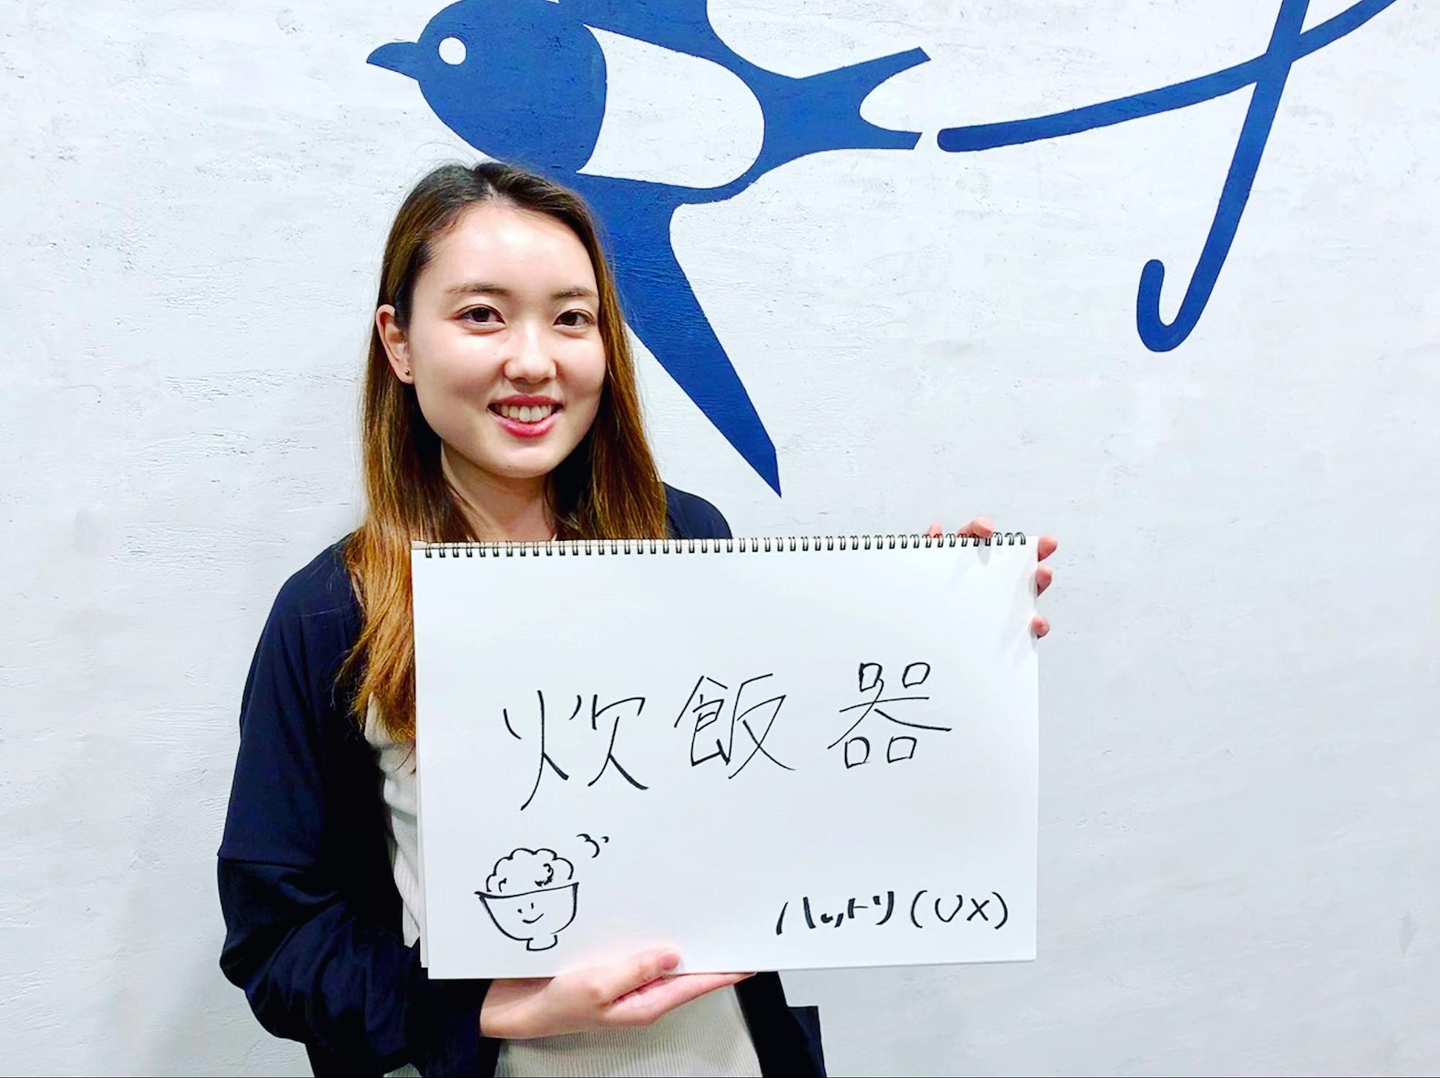 炊飯器
ハットリ(UX)